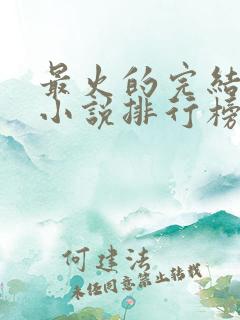 最火的完结
小说排行榜
何建法
未经同意禁止转载